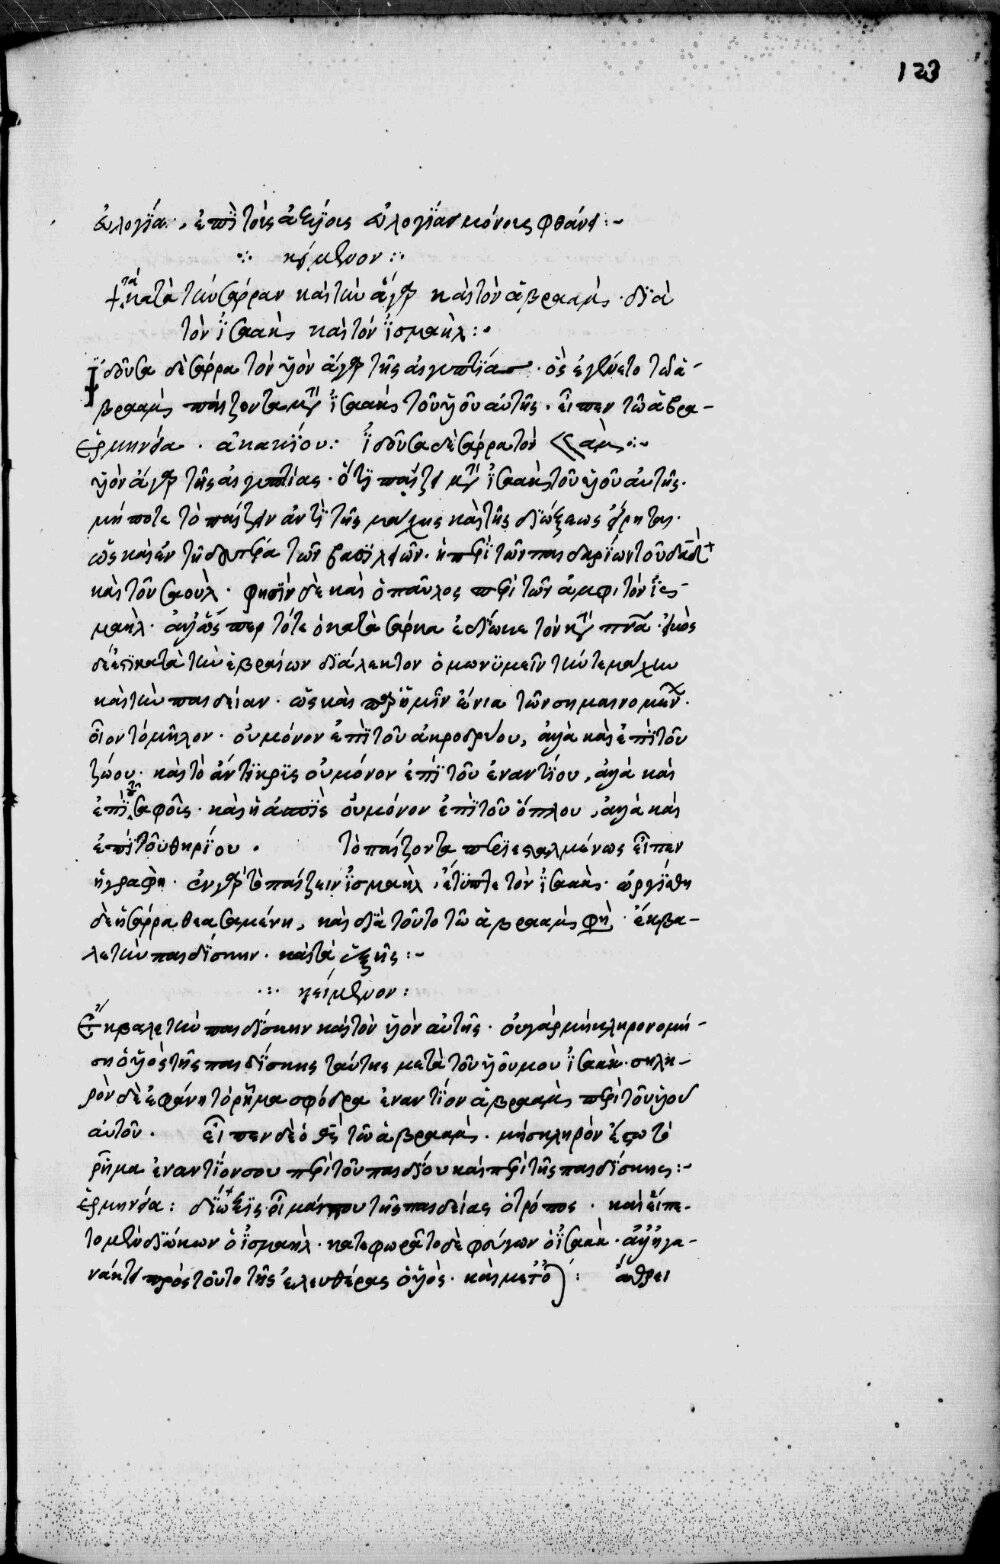 123
εὐλογία, ἐπὶ τοῖς ἀξίοις εὐλογίας μόνοις φθάνει:~
κείμενον:
τὰ κατὰ τὴν σάρραν καὶ τὴν ἄγαρ καὶ τὸν ἀβραὰμ, διὰ
τὸν ἰσαὰκ καὶ τὸν ἰσμαὴλ:~
ἰδοῦσα δὲ σάρρα τὸν υἱὸν ἄγαρ τῆς αἰγυπτίας, ὃς ἐγένετο τῶ ἀ-
βραὰμ παίζοντα μετὰ ἰσαὰκ τοῦ υἱοῦ αὐτῆς. εἶπεν τῶ ἀβρα-
ἑρμηνεία. ἀκακίου: ἰδοῦσα δὲ σάρρα τὸν ὰμ:~
υἱὸν ἄγαρ τῆς αἰγυπτίας. ὅτι παίζει μετὰ ἰσαὰκ τοῦ υἱοῦ αὐτῆς.
μήποτε τὸ παίζειν ἀντὶ τῆς μάχης καὶ τῆς διώξεως εἴρηται.
ὡς καὶ ἐν τῆ δευτέρα τῶν βασιλειῶν. ἡ περὶ τῶν παιδαρίων τοῦ δαδ
καὶ τοῦ σαούλ. φησὶν δὲ καὶ ὁ παῦλος περὶ τῶν ἀμφὶ τὸν ἰσ-
μαὴλ. ἀλλ' ὥσπερ τότε ὁ κατὰ σάρκα ἐδίωκε τὸν κατὰ πνα. εἰκὸς
δέ ἐστι κατὰ τὴν ἑβραίων διάλεκτον ὁμωνυμεῖν τήν τε μάχην
καὶ τὴν παιδείαν. ὡς καὶ παρ' ἡμῖν ἔνια τῶν σημαινομένων.
οἷον τὸ μῆλον. οὐ μόνον ἐπὶ τοῦ ἀκροδρύου, ἀλλὰ καὶ ἐπὶ τοῦ
ζώου. καὶ τὸ ἀντικρὶς οὐ μόνον ἐπὶ τοῦ ἐναντίου, ἀλλὰ καὶ
ἐπὶ τοῦ σαφοῖς. καὶ ἡ ἀσπὶς οὐ μόνον ἐπὶ τοῦ ὅπλου, ἀλλὰ καὶ
ἐπὶ τοῦ θηρίου. τὸ παίζοντα περιεσταλμένως εἶπεν
ἡ γραφὴ. ἐν γὰρ τῶ παίζειν ἰσμαὴλ, ἔτυπτε τὸν ἰσαὰκ. ὠργίσθη
δὲ ἡ σάρρα θεασαμένη, καὶ διὰ τοῦτο τῶ ἀβραὰμ φησὶ. ἔκβα-
λε τὴν παιδίσκην. καὶ τὰ ἑξῆς:~
κείμενον:
ἔκβαλε τὴν παιδίσκην καὶ τὸν υἱὸν αὐτῆς. οὐ γὰρ μὴ κληρονομή-
ση ὁ υἱὸς τῆς παιδίσκης ταύτης μετὰ τοῦ υἱοῦ μου ἰσαάκ. σκλη-
ρὸν δὲ ἐφάνη τὸ ῥῆμα σφόδρα ἐναντίον ἀβραὰμ περὶ τοῦ υἱοῦ
αὐτοῦ. εἶπεν δὲ ὁ θς τῶ ἀβραὰμ. μὴ σκληρὸν ἔστω τὸ
ῥῆμα ἐναντίον σου περὶ τοῦ παιδίου καὶ περὶ τῆς παιδίσκης:~
ἑρμηνεία: δίωξις οἶμαί που τῆς παιδείας ὁ τρόπος. καὶ εἵπε-
το μὲν διώκων ὁ ἰσμαὴλ. κατεφωρᾶτο δὲ φεύγων ὁ ἰσαὰκ.
νάκτει πρὸς τοῦτο τῆς ἐλευθέρας ὁ υἱὸς.
ἄθρει